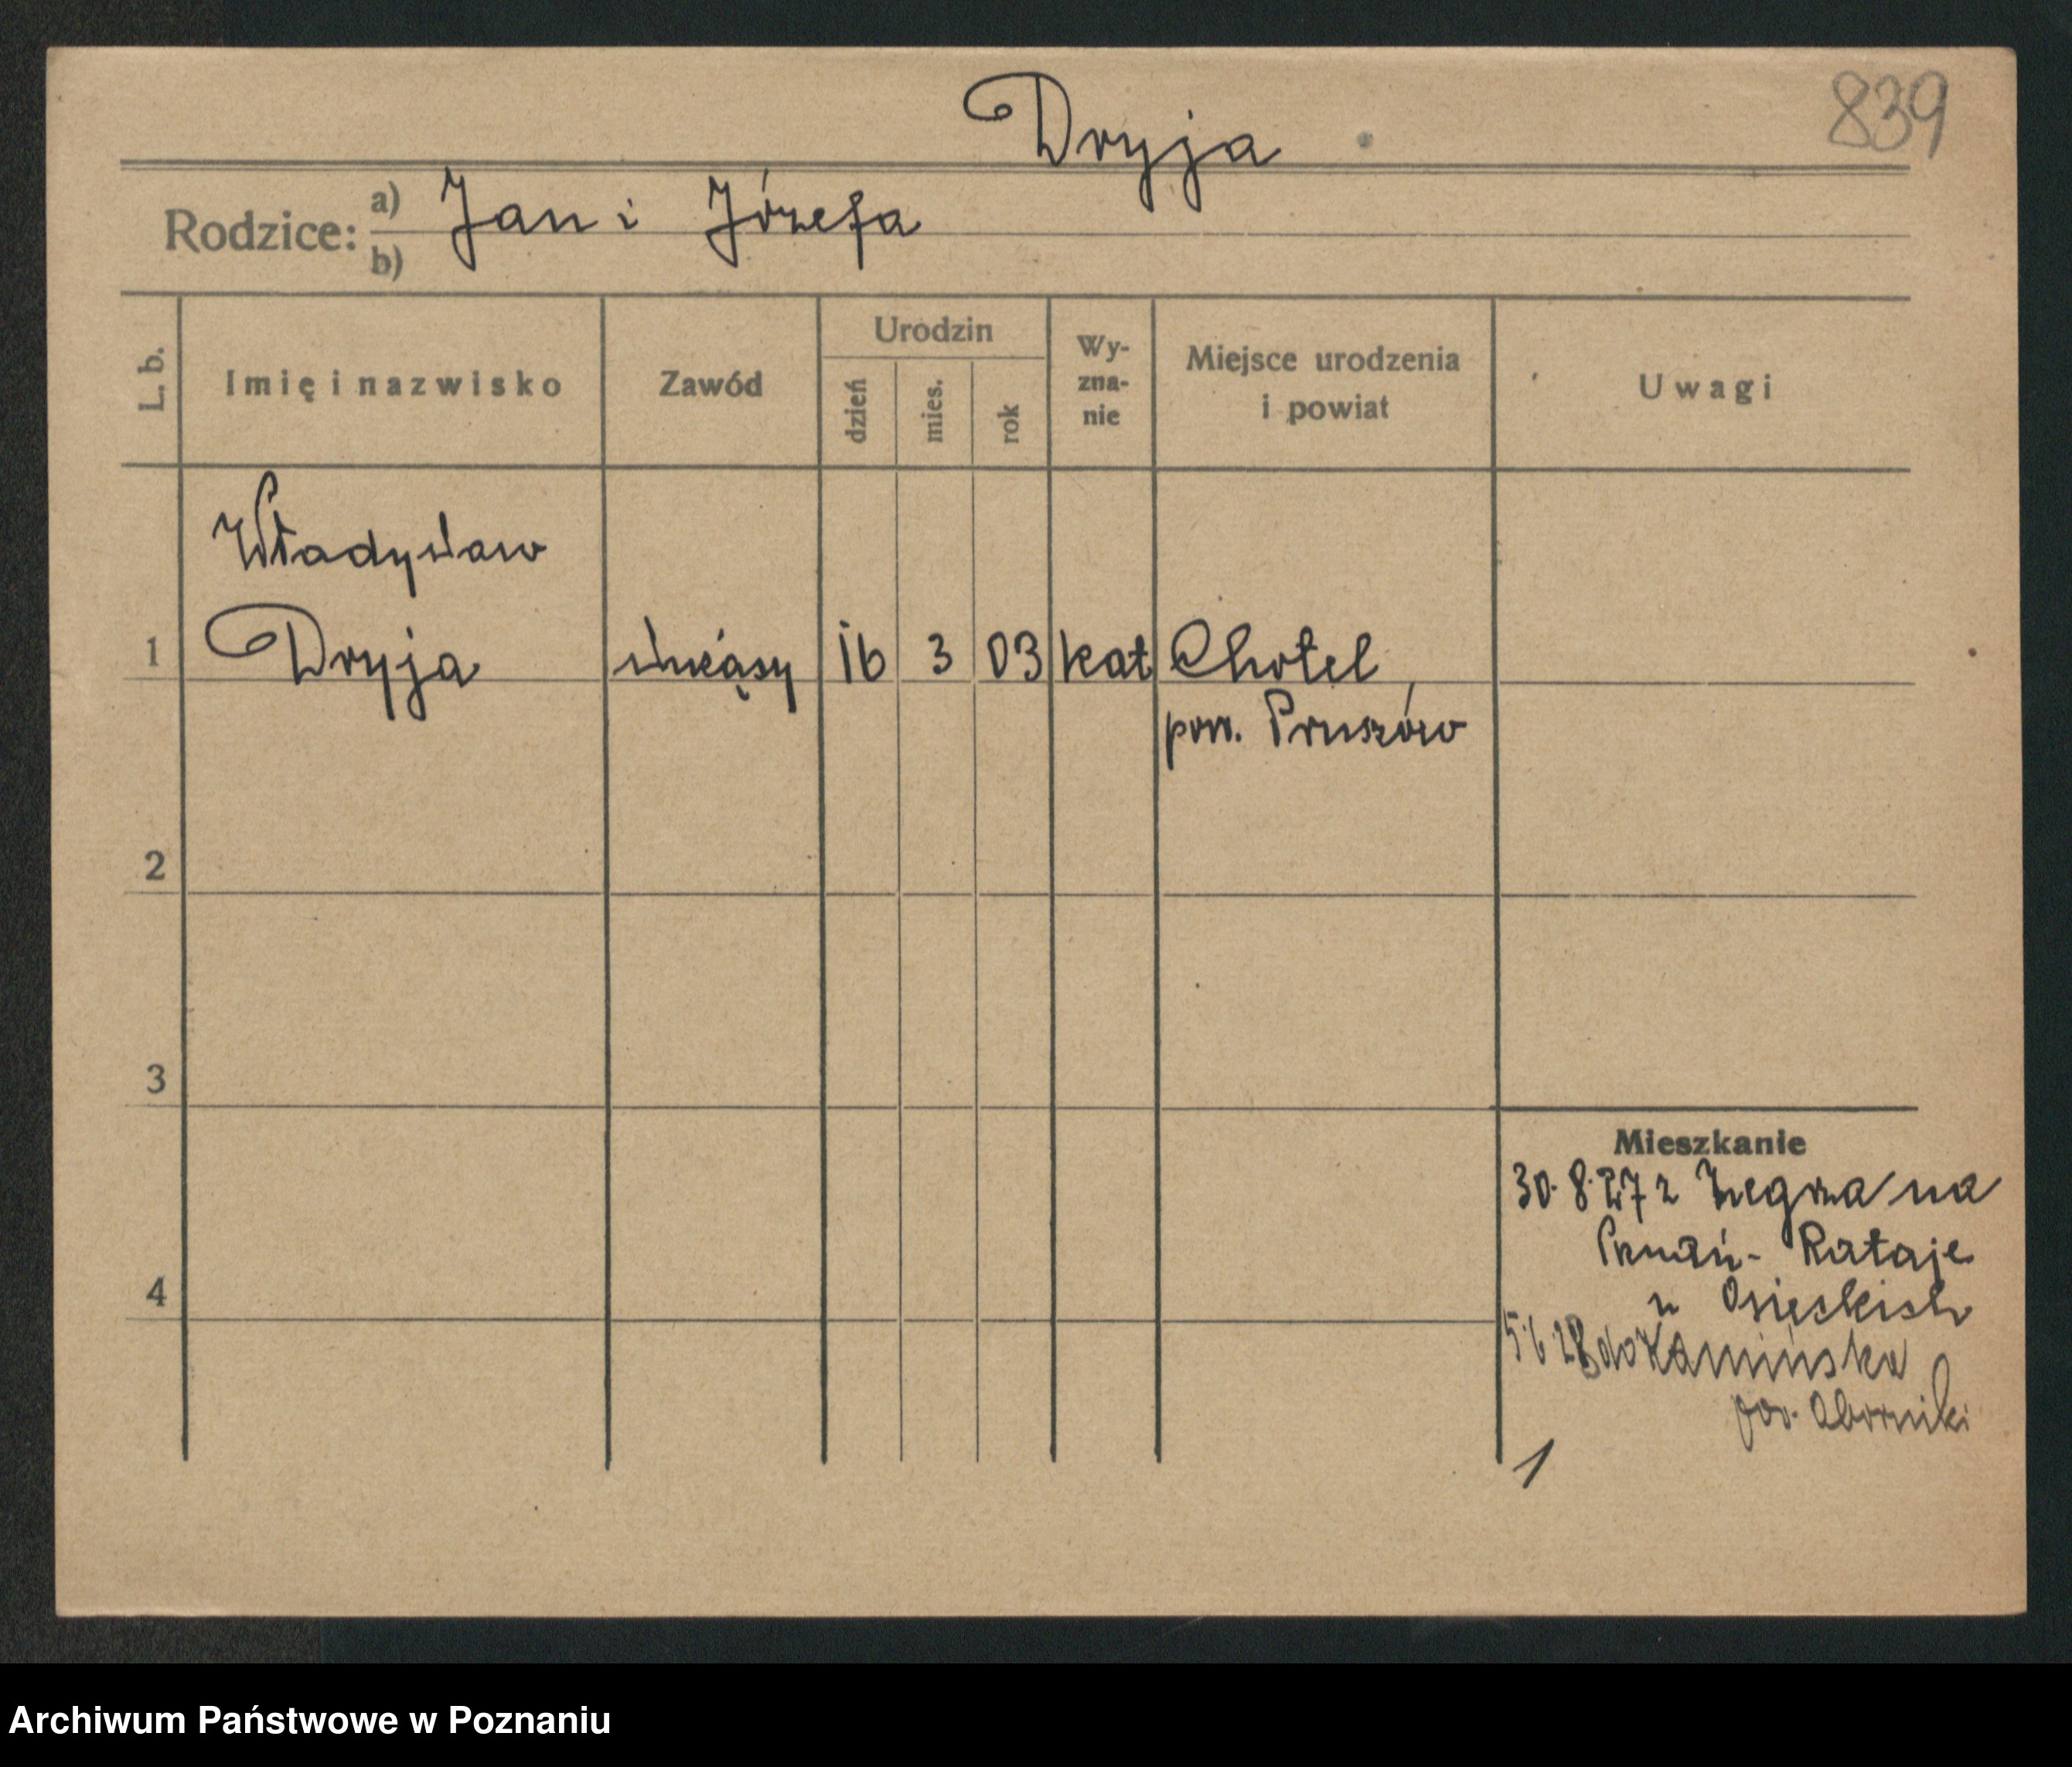 Dryja
839
Rodzice: a) Jan i Józefa
b)
L. b.
Imię i nazwisko
Zawód
Urodzin
dzień
mies.
rok
Wy-
zna-
nie
Miejsce urodzenia
i powiat
Uwagi
Władysław
1 Dryja służący 16 3 03 kat Chotel
pow. Pruszów
2
3
4
Mieszkanie
30. 8. 27 z Żegrza na
Poznań - Rataje
u Osięckich
5 6 28 do Kamińska
pow. Oborniki
1
Archiwum Państwowe w Poznaniu